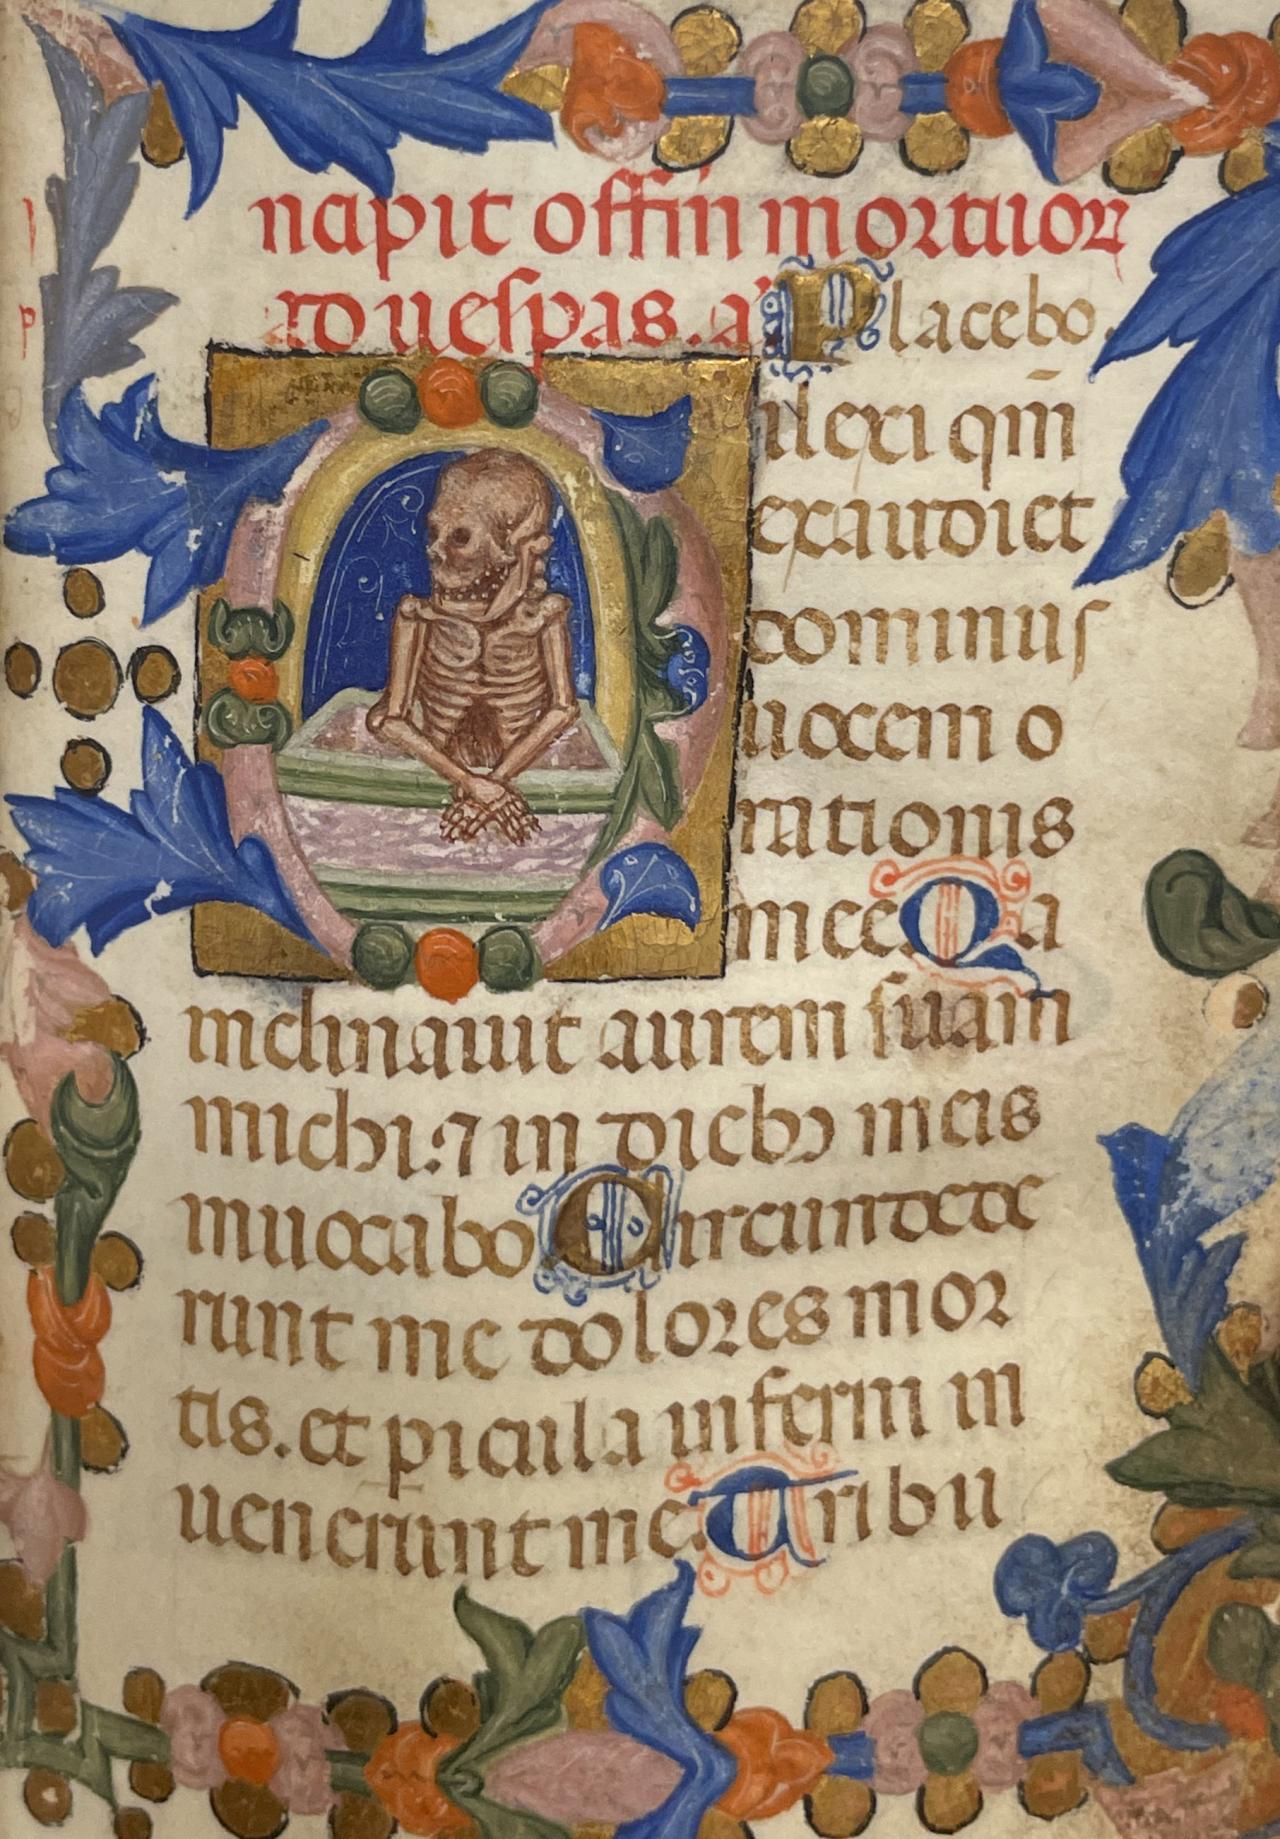 ncipit offin mortuor
ad uespas. a. Placebo.
ilexi qm
exaudiet
dominus
uocem o
rationis
mee. Qa
inclinauit aurem suam
michi: 7 in dieb meis
inuocabo Circundede
runt me dolores mor
tis. et picula inferni in
uenerunt me. Tribu